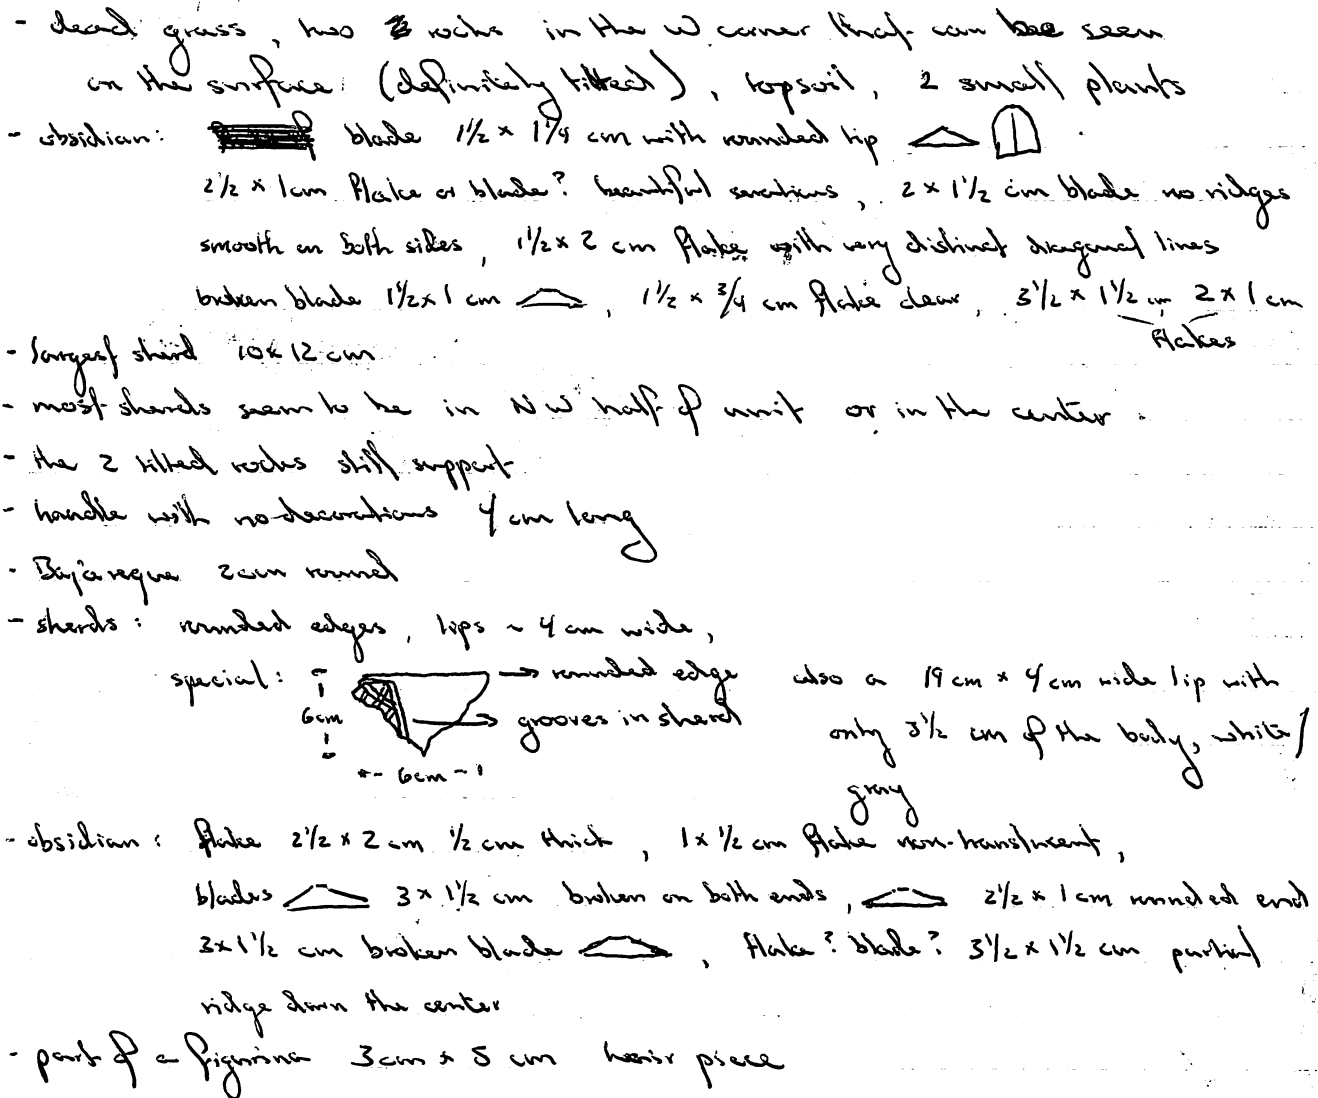 - dead grass, two rocks in the W corner that can be seen
on the surface (definitely tilted), topsoil, 2 small plants
- obsidian: blade 1½ × 1¼ cm with rounded tip
2½ × 1cm flake or blade? beautiful serrations, 2 × 1½ cm blade no ridges
smooth on both sides, 1½ × 2 cm flake with very distinct diagonal lines
broken blade 1½ × 1 cm, 1½ × ¾ cm flake clear, 3½ × 1½ cm 2 × 1 cm
flakes
- largest sherd 10 × 12 cm
- most sherds seem to be in NW half of unit or in the center.
- the 2 tilted rocks still support
- handle with no decorations 4 cm long
- Bajareque 2cm round
- sherds: rounded edges, lips ~ 4 cm wide,
special: 6cm → rounded edge also a 19 cm × 4 cm wide lip with
→ grooves in sherd only 3½ cm of the body, white/
6cm gray
- obsidian: flake 2½ × 2 cm ½ cm thick, 1 × ½ cm flake non-translucent,
blades 3 × 1½ cm broken on both ends, 2½ × 1 cm rounded end
3 × 1½ cm broken blade, flake? blade? 3½ × 1½ cm partial
ridge down the center
- part of a figurine 3cm × 5 cm hair piece